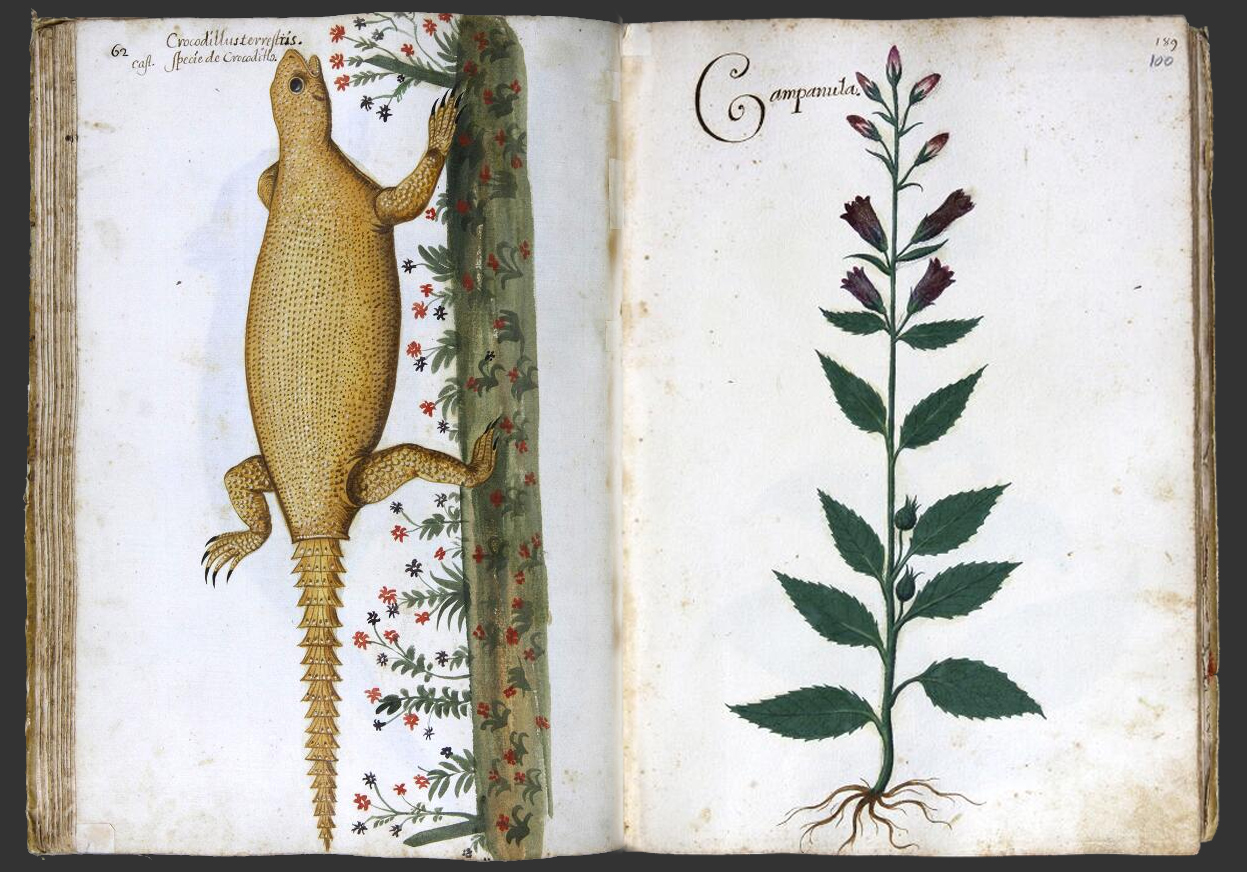 62
Crocodillus terrestris.
cast. specie de Crocodillo.
189
100
Campanula.